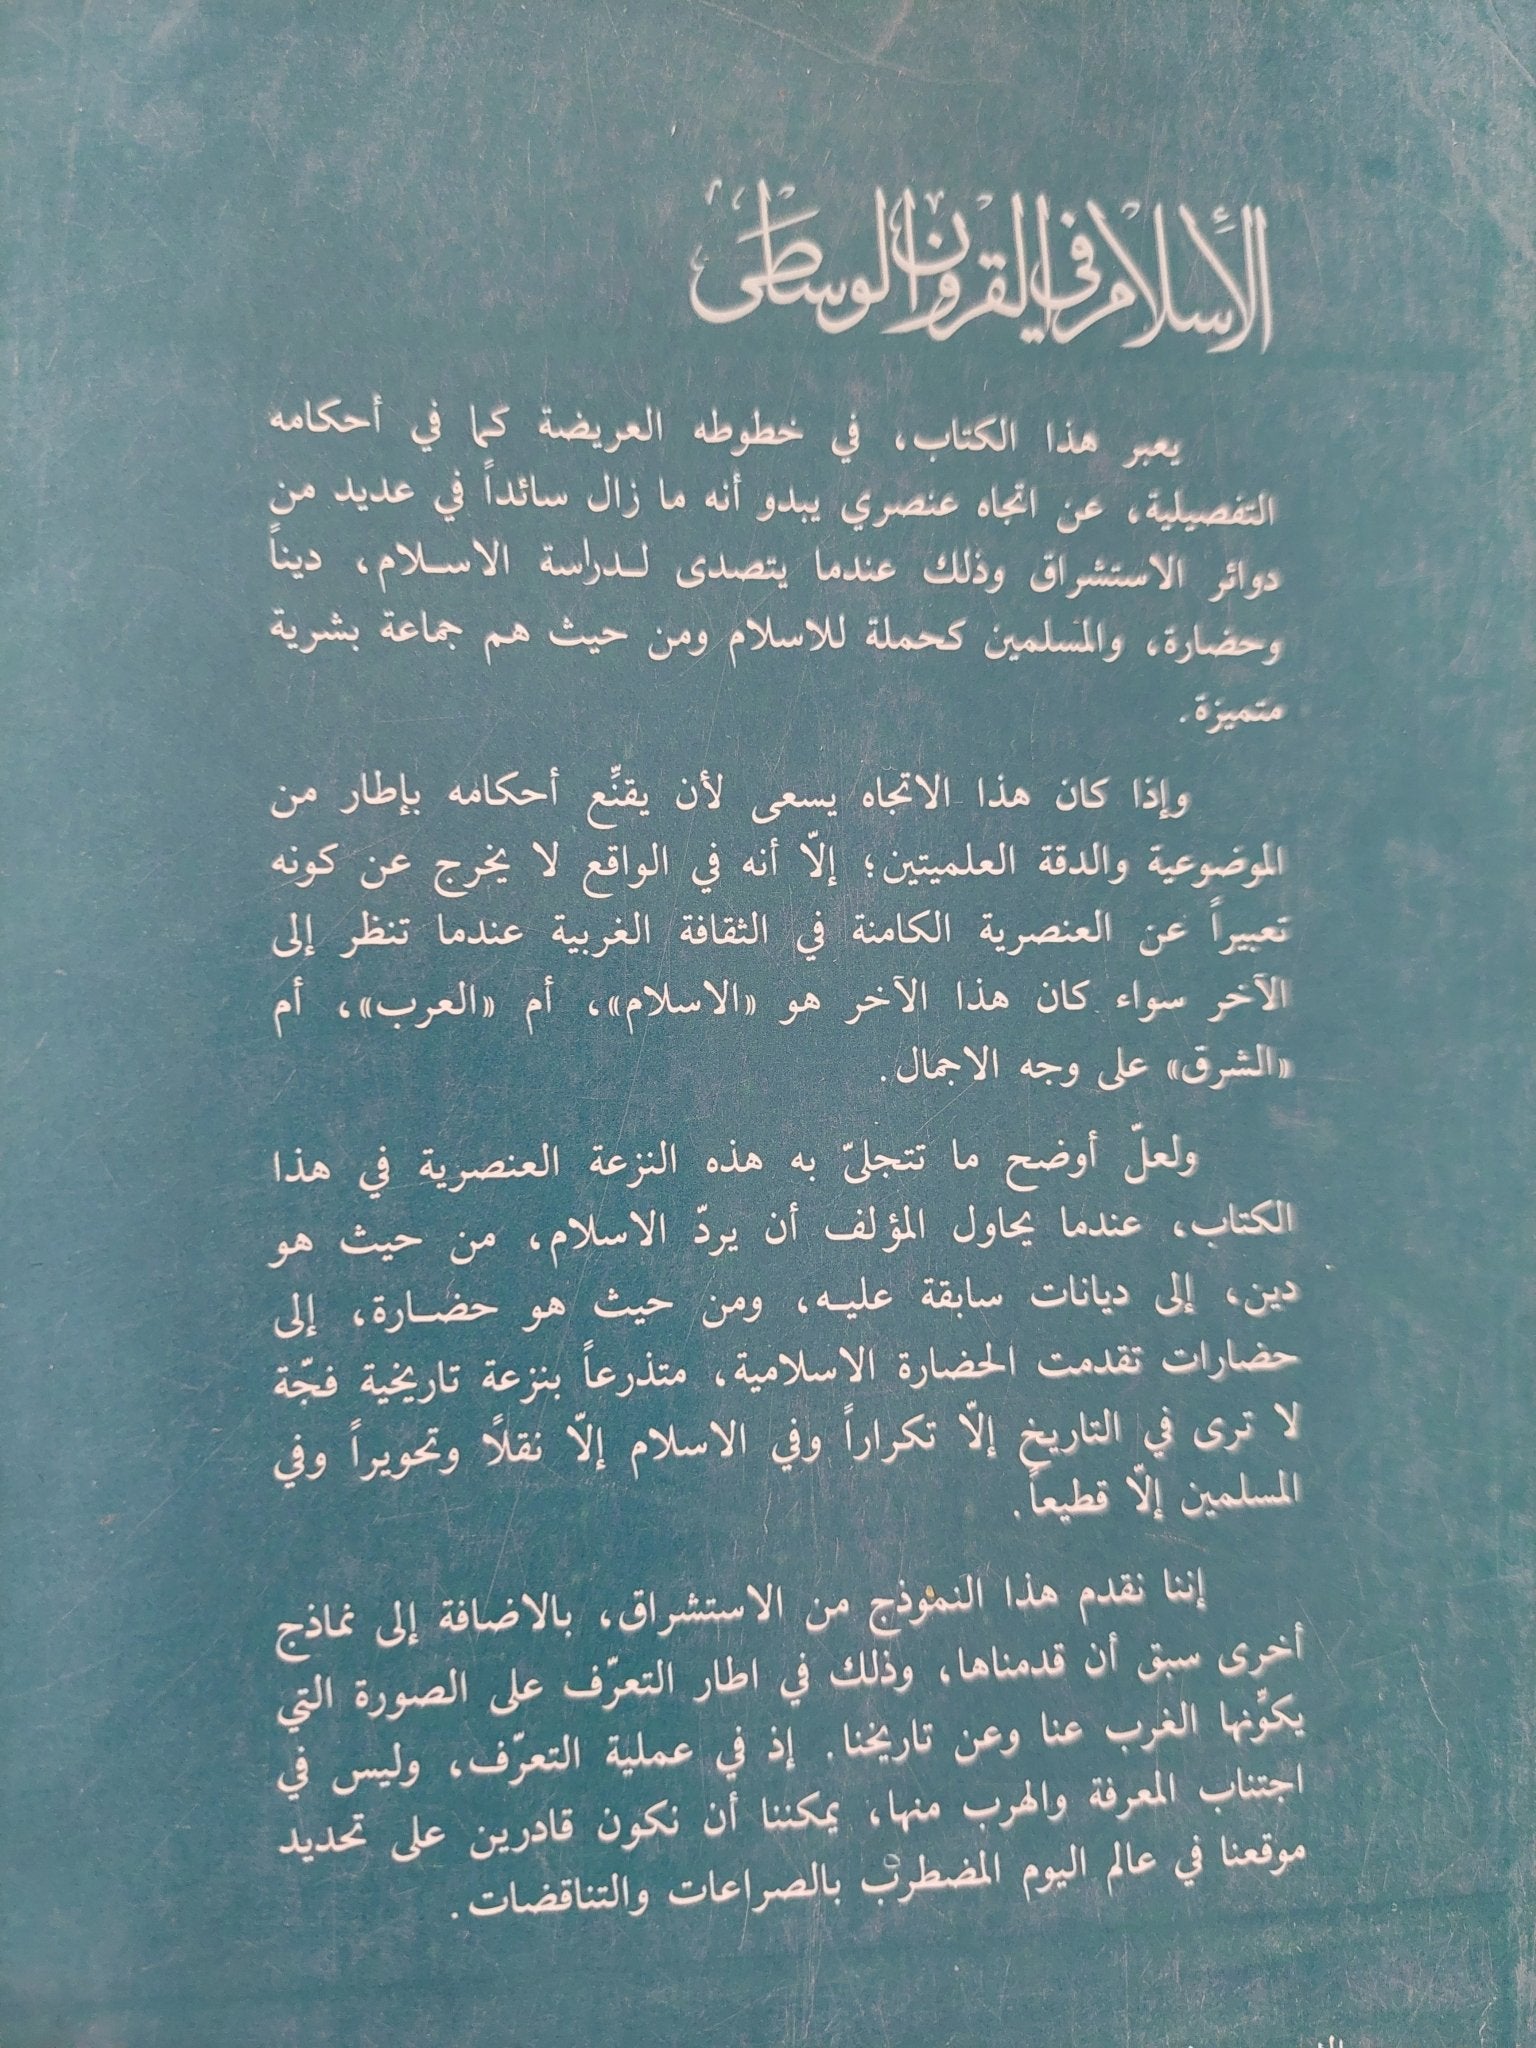 الإسلام في القرون الوسطى
يعبر هذا الكتاب، في خطوطه العريضة كما في أحكامه
التفصيلية، عن اتجاه عنصري يبدو أنه ما زال سائداً في عديد من
دوائر الاستشراق وذلك عندما يتصدى لـدراسة الاسـلام، ديناً
وحضارة، والمسلمين كحملة للاسلام ومن حيث هم جماعة بشرية
متميزة.
وإذا كان هذا الاتجاه يسعى لأن يقنِّع أحكامه بإطار من
الموضوعية والدقة العلميتين؛ إلّا أنه في الواقع لا يخرج عن كونه
تعبيراً عن العنصرية الكامنة في الثقافة الغربية عندما تنظر إلى
الآخر سواء كان هذا الآخر هو «الاسلام»، أم «العرب»، أم
«الشرق» على وجه الاجمال.
ولعلّ أوضح ما تتجلىّ به هذه النزعة العنصرية في هذا
الكتاب، عندما يحاول المؤلف أن يردّ الاسلام، من حيث هو
دين، إلى ديانات سابقة عليـه، ومن حيث هو حضـارة، إلى
حضارات تقدمت الحضارة الاسلامية، متذرعاً بنزعة تاريخية فجّة
لا ترى في التاريخ إلّا تكراراً وفي الاسلام إلّا نقلاً وتحويراً وفي
المسلمين إلّا قطيعاً.
إننا نقدم هذا النموذج من الاستشراق، بالاضافة إلى نماذج
أخرى سبق أن قدمناها، وذلك في اطار التعرّف على الصورة التي
يكوِّنها الغرب عنا وعن تاريخنا. إذ في عملية التعرّف، وليس في
اجتناب المعرفة والهرب منها، يمكننا أن نكون قادرين على تحديد
موقعنا في عالم اليوم المضطرب بالصراعات والتناقضات.